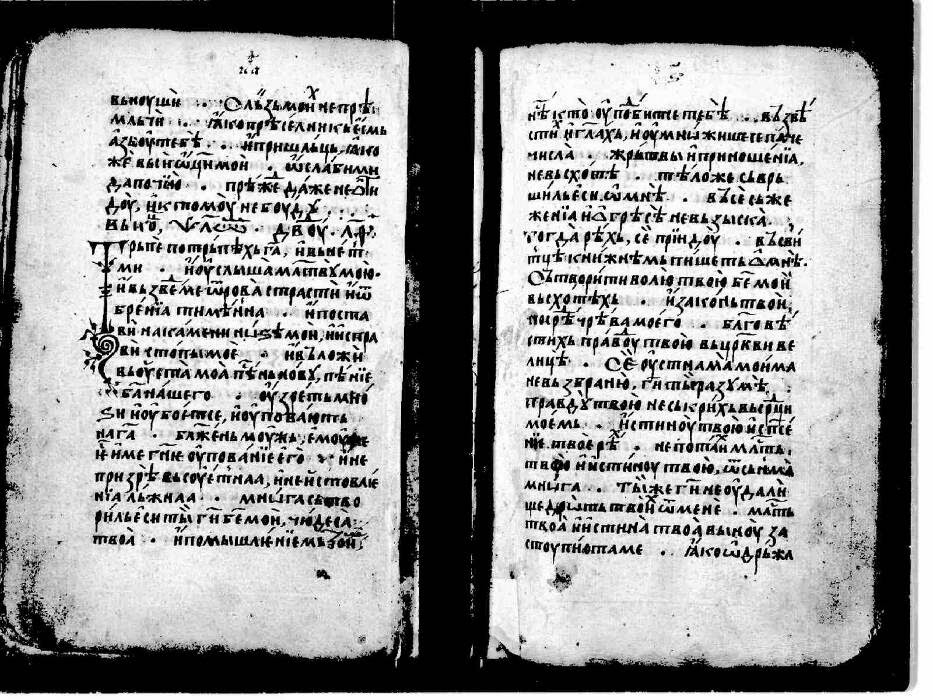 вьноуши . Ѿ слъзь мои не прѣ
мльчи . Ꙗко прѣселник ь есмь
азь оу тебѣ . и пришльць, ꙗко
же вьси ѿци мои . ѿслаби ми
да почию . прѣжде даже не ѿи
доу, и к томоу не боудоу .
вь конь, ѱалѡм двоу . л҃ѳ .
Трьпе потрьпѣхь га, и вьнет
ми . и оуслыша млтвоу мою .
и вьзведе ме ѿ рова страсти и ѿ
брениа тимѣниа . и поста
ви на камени нозѣ мои, и испра
ви стопы мое . и вьложи
вь оуста моа пѣснь новоу, пѣние
боу нашемоу . оузреть мно
ѕи и оубоетсе, и оуповають
на га . блажень моужь, емоуже
е име гне оупование его . и не
призрѣ вь соуетнаа, и неистовлé
ниа льжнаа . многа сьтво
риль еси ты ги бе мои, чюдеса
твоа . и помышлением твоим
нѣ кто оуподобитсе тебѣ . вьзвѣ
стих и глахь, и оумножише се паче
числа . жрьтвы и приношениа,
не вьсхотѣ . тѣло же сьврь
шиль еси ѡ мнѣ . вьсесьже
жениа и ѡ грѣсѣ не вьзыска .
тогда рѣхь, се приидоу . вь сви
тцѣ книжнѣмь пишеть ѡ мнѣ .
Сьтворити волю твою бе мои
вьсхотѣхь . и законь твои,
посрѣ чрѣва моего . блговѣ
стихь правдоу твою вь цркви ве
лицѣ . Се оустнама моима
не вьзбраню, ги ты разоумѣ .
правдоу твою не ськрихь вь срци
моемь . истиноу твою и спсе
ние твое рѣ . не потаих млть
твою и истиноу твою, ѿ сьньма
многа . Ты же ги не оудали
щедрѡть твоих ѿ мене . млть
твоа и истина твоа выноу за
стоупита ме . Ꙗко ѡдрьжа